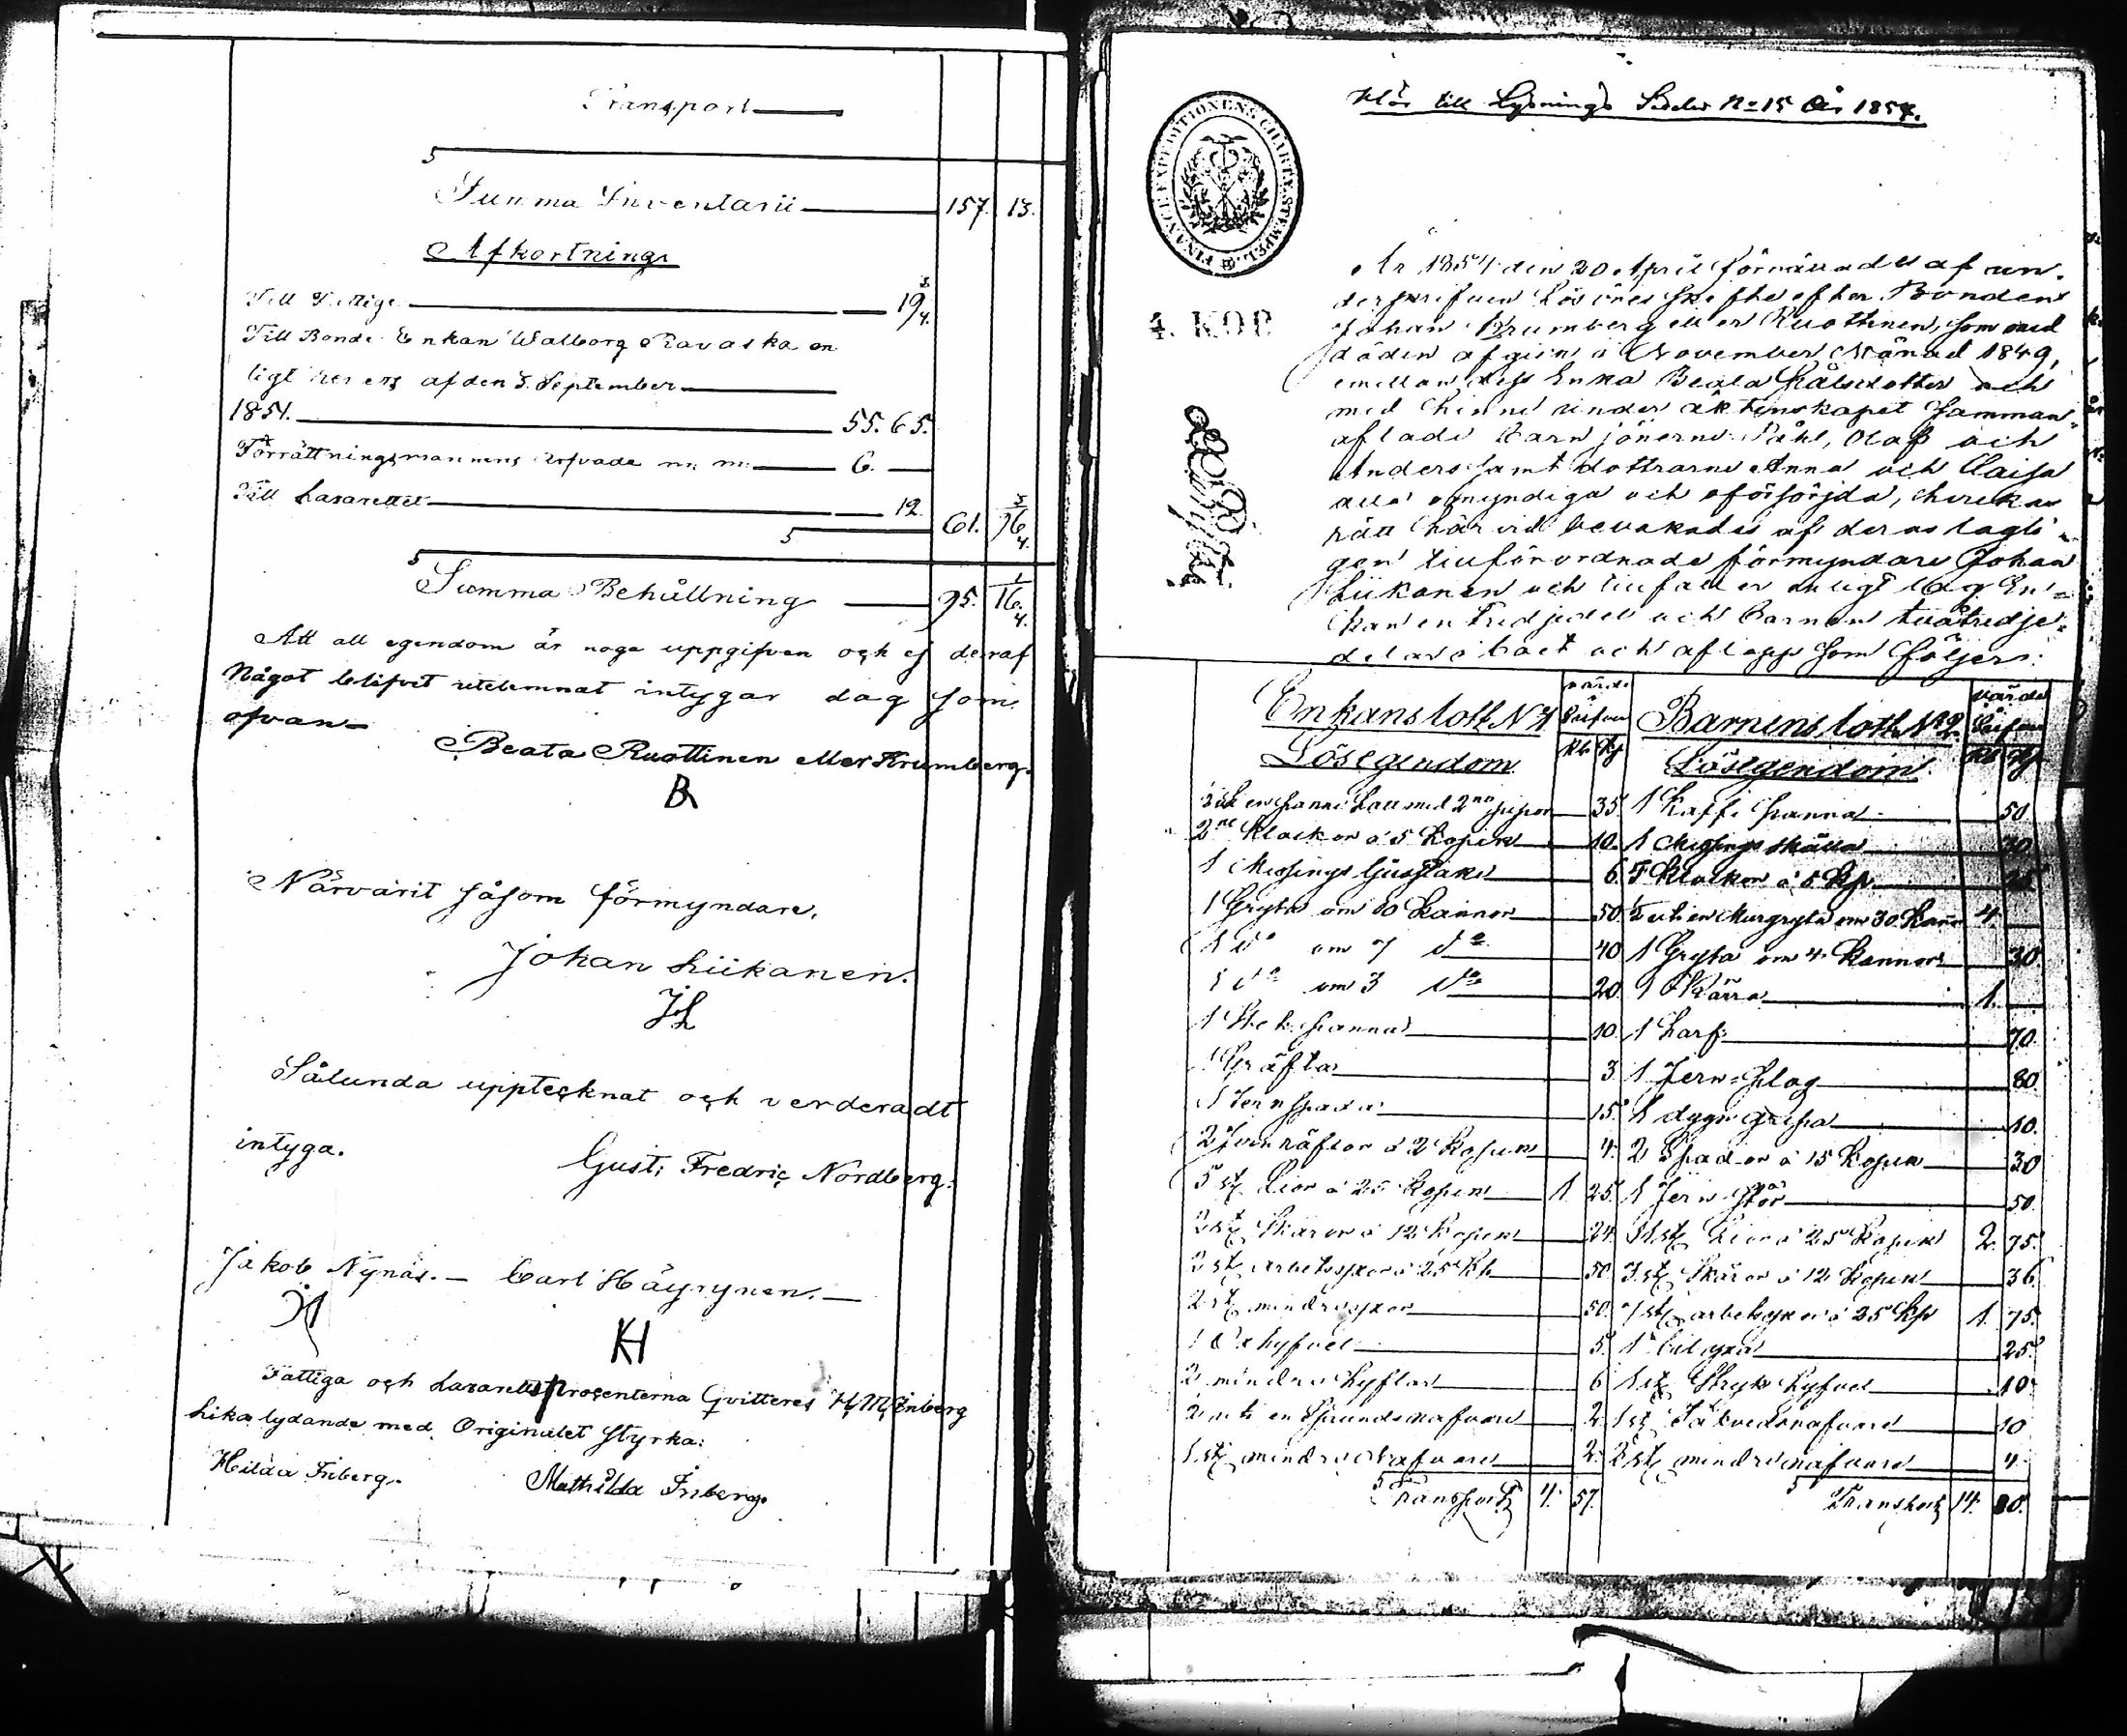 Transport
S
Summa Inventarii 157. 13.
Afkortning
Till Fattige 19 3/4.
Till Bonde Enkan Walborg Ravaska en
ligt revers af den 5. September
1851. 55. 65.
Förrättningsmannens arfvade m. m. 6.
Till Lazarettet 12 61. 96 3/4.
S
Summa Behållning 95. 16 1/4.
Att all egendom är noga uppgifven och ej deraf
Något blifvit utelemnat intygar dag som
ofvan
Beata Ruottinen eller Krumberg.
B R
Närvarit såsom förmyndare.
Johan Liikanen.
JL
Sålunda upptecknat och verderadt
intyga.
Gust: Fredric Nordberg.
Jakob Nynäs. Carl Häyrynen.
JN
KH
Fattiga och Lazaretts procenterna qvitteres H. M. Inberg
Lika lydande med Originalet styrka:
Hilda Inberg. Mathilda Inberg.
Hör till Lysnings Sedel No 15 År 1854.
FINANCE EXPEDITIONENS CHARTÆ STEMPEL
4. KOP
År 1854 den 20 April förrättades af un-
derskrifven Lösöres skifte efter Bonden
Johan Krumberg eller Ruottinen, som med
döden afgick i November Månad 1849,
emellan dess Enka Beata Påhlsdotter och
med henne under äktenskapet samman-
aflade barn sönerne Påhl, Olof och
Anders samt dottrarne Anna och Caisa
alla omyndiga och oförsörjda, hvilkas
rätt härvid bevakades af deras lagli-
gen tillförordnade förmyndare Johan
Liikanen och tillfaller enligt lag En-
kan en tredjedel och Barnen tvåtredje-
delar i boet och aflopp som följer:
Enkans lott No 1 värde Silfver Barnens lott No 2. värde Silfver
Lösegendom Rb Kp Lösegendom Rb Kp
panna med 2ne pipor 35. 1 Kaffe panna 50
2ne Klockor á 5 Kopek 10. 1 Messings skålla 20
1 Messings ljusstake 6. 5 Klockor á 5 Kp 25
1 Gryta om 10 Kannor 50. 1/2 uti en Murgryta om 30 Kannor 4.
1 do om 7 do 40 1 Gryta om 4 Kannor 30
1 do om 3 do 20. 1 Kärra 1.
1 Stekpanna 10. 1 Harf 70.
1 Gräfta 3. 1 Jern Plog 80.
1 Jernspada 15. 1 dynggrepa 10.
2 Jernräfsor á 2 Kopek 4. 2 Spador á 15 Kopek 30
5 st. Lior á 25 Kopek 1. 25. 1 Jern Stör 50.
2 st. Skäror á 12 Kopek 24. 11 st. Lior á 25 Kopek 2. 75.
2 st. arbetsyxor á 25 Kp 50. 3 st. Skäror á 12 Kopek 36.
2 st. mindre yxor 50. 7 st. arbetsyxor á 25 Kp 1. 75.
1 Oxhyfvel 5. 1 bilyxa 25.
2 mindre hyflar 6 1 st. Strykhyfvel 10.
2 uti en Spundsnafvare 2. 1 st. nafvare 10
1 st. mindre nafvare 2. 2 st. mindre nafvare 4.
S Transport 4. 57. S Transport 14. 80.